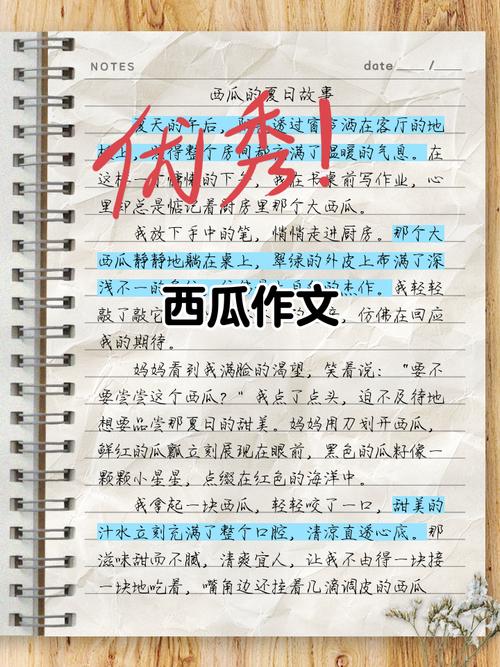 NOTES
date ___ / ___
西瓜的夏日故事
优秀!
夏天的午后,阳光透过窗户洒在客厅的地
板上,使得整个房间都充满了温暖的气息。在
这样一个慵懒的下午,我在书桌前写作业,心
里却总是惦记着厨房里那个大西瓜。
我放下手中的笔,悄悄走进厨房。那个大
西瓜静静地躺在桌上,翠绿的外皮上布满了深
浅不一的 杰作。我轻轻
西瓜作文
敲了敲它 ,仿佛在回应
我的期待。
妈妈看到我满脸的渴望,笑着说:“要不
要尝尝这个西瓜?”我点了点头,迫不及待地
想要品尝那夏日的甜美。妈妈用刀划开西瓜,
鲜红的瓜瓤立刻展现在眼前,黑色的瓜籽像一
颗颗小星星,点缀在红色的海洋中。
我拿起一块西瓜,轻轻咬了一口,甜美的
汁水立刻充满了整个口腔,清凉直透心底。那
滋味甜而不腻,清爽宜人,让我不由得一块接
一块地吃着,嘴角边还挂着几滴调皮的西瓜